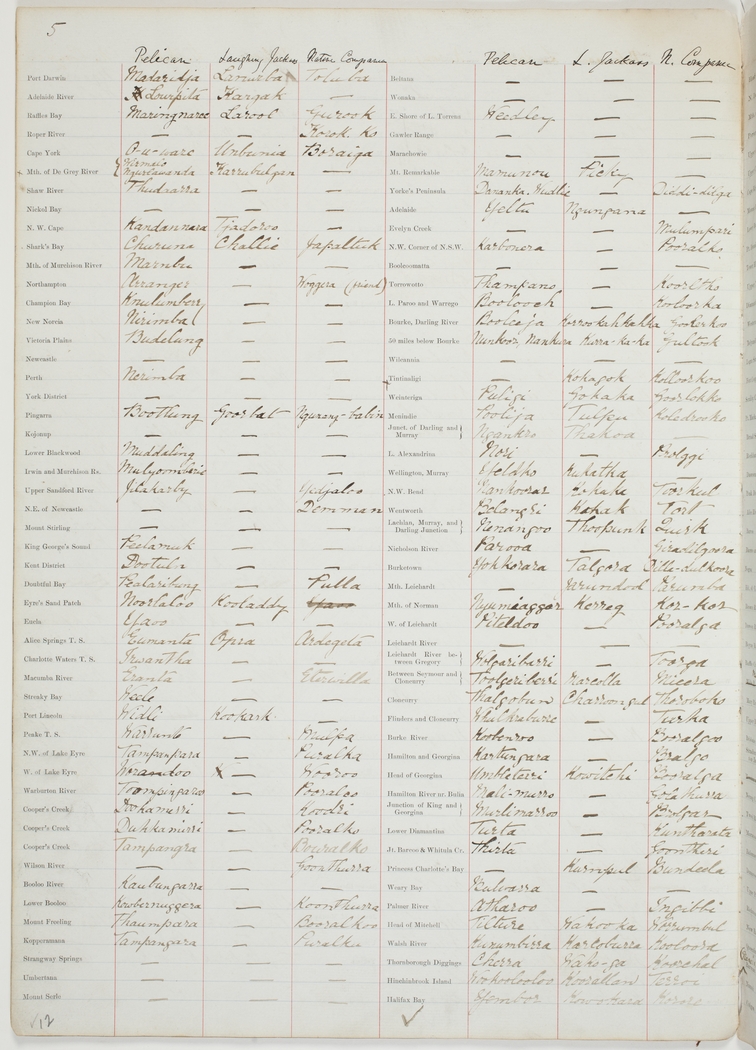 5
Pelican Laughing Jackass Native Companion
Port Darwin Madaridja Larurba Toluba
Adelaide River Lourpita Kargak —
Raffles Bay Maringnaree Larool Gurook
Roper River — — Korok ko
Cape York O-u-warc Unbunia Boraiga
Mth. of De Grey River Ngurlawanda Karrubulgan —
Shaw River Thudnarra — —
Nickol Bay — — —
N. W. Cape Kandannara Tjadoroo —
Shark's Bay Churuna Challie Japaltuk
Mth. of Murchison River Marnbu — —
Northampton — Woggera (friend)
Champion Bay — —
New Norcia Nirimba — —
Victoria Plains Budelung — —
Newcastle — — —
Perth Nerimba — —
York District — — —
Pingarra Boothung Goorbat Ngurang-babin
Kojonup — — —
Lower Blackwood Muddaling — —
Irwin and Murchison Rs. — —
Upper Sandford River Jilakarby — Gidjaloo
N.E. of Newcastle — — Demman
Mount Stirling — — —
King George's Sound Teelamuk — —
Kent District Dootuln — —
Doubtful Bay Pealaribung — Pulla
Eyre's Sand Patch Noorlaloo Kooladdy
Eucla — —
Alice Springs T. S. Eumanta Ardegeta
Charlotte Waters T. S. Irwantha — —
Macumba River Eranta — Eterwilla
Streaky Bay Weele — —
Port Lincoln Widli Kookark —
Peake T. S. Warrunti — Mulpa
N.W. of Lake Eyre Tampanpara — Puralka
W. of Lake Eyre — Nooroo
Warburton River — Pooraloo
Cooper's Creek — Koodri
Cooper's Creek Dukkamirri — Pooralko
Cooper's Creek Tampangra — Booralko
Wilson River — — Goorthurra
Booloo River Kaulungarra — —
Lower Booloo — Koonthurra
Mount Freeling Thaumpara — Booralkoo
Kopperamana Tampangara — Puralku
Strangway Springs — — —
Umbertana — — —
Mount Serle — — —
12
Pelican L. Jackass N. Compan
Beltana — — —
Wonaka — — —
E. Shore of L. Torrens — —
Gawler Range — — —
Marachowie — — —
Mt. Remarkable Mamunou —
Yorke's Peninsula — Diddi-didga
Adelaide Ngungana —
Evelyn Creek — — Mulumpari
N.W. Corner of N.S.W. Karbonera — Pooralko
Boolcoomatta — — —
Torrowotto Thampano — Kooritho
L. Paroo and Warrego Boolooch — Kooloorka
Bourke, Darling River Booleeja
50 miles below Bourke Kurra-ka-ka Gultook
Wilcannia — — —
Tintinaligi — Kokagok Kolloorkoo
Weinteriga Puligi Gokaka Goorlokko
Menindie Poolija Tulpu
Junct. of Darling and Murray Ngankro Thakoa —
L. Alexandrina Nori — Prolggi
Wellington, Murray Kukatha
N.W. Bend Nankoorar Kokaka Toorkul
Wentworth Belangri Kokak Tort
Lachlan, Murray, and Darling Junction Nenangoo Thoopunk
Nicholson River Parooa — Giradilgoora
Burketown Talgora
Mth. Leichardt — Parumba
Mth. of Norman Kerreg Kor-kor
W. of Leichardt Piteldoo — Pooralga
Leichardt River — — —
Leichardt River between Gregory Wolgaribarri — Toorga
Between Seymour and Cloncurry Toolgeriberri Marcolla
Cloncurry Thalgobun Charrongul Thoroboko
Flinders and Cloncurry — Turka
Burke River Koobenroo — Booralgoo
Hamilton and Georgina Kartungara — Bralgo
Head of Georgina Umbleterri Kowitchi Booralga
Hamilton River nr. Bulia —
Junction of King and Georgina Murlimarroo — Brolgar
Lower Diamantina Turta — Kuntharata
Jt. Barcoo & Whitula Cr. Thirta — Goontheri
Princess Charlotte's Bay — Kumpul Bundeela
Weary Bay Bulwarra — —
Palmar River Atharoo — Ingibbi
Head of Mitchell Tilture Wakooka
Walsh River Kurumbirra Karloburra Kooloora
Thornborough Diggings Cherra Wake-ga
Hinchinbrook Island Kooratlan
Halifax Bay